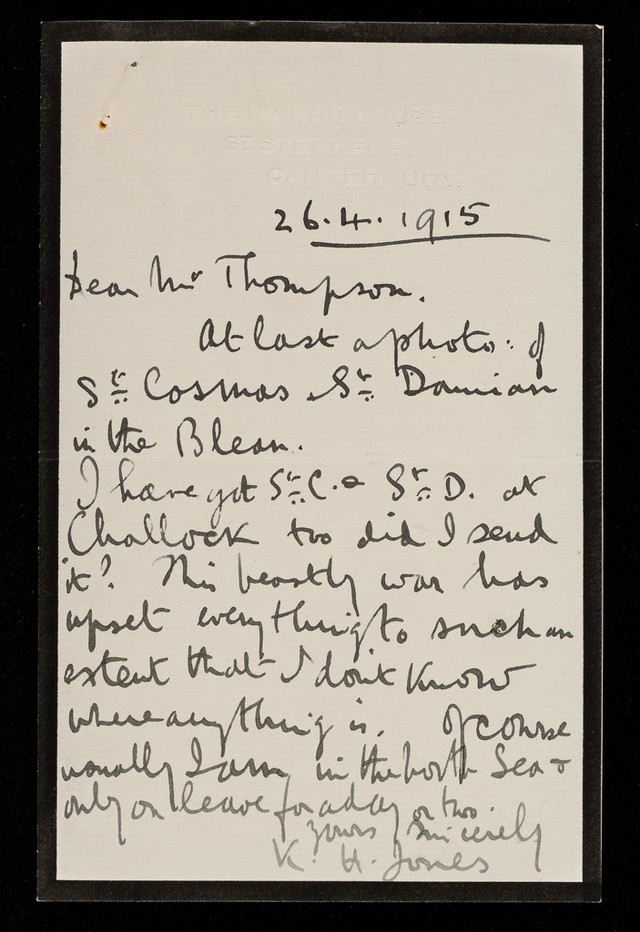 THE MANOR HOUSE
ST STEPHENS
CANTERBURY.
26.4.1915
Dear Mr Thompson.
At last a photo: of
St Cosmas & St Damian
in the Blean.
I have got St C. & St D. at
Challock too did I send
it? This beastly war has
upset everything to such an
extent that I don't know
where anything is. Of course
usually I am in the North Sea &
only on leave for a day or two.
Yours sincerely
K. H. Jones